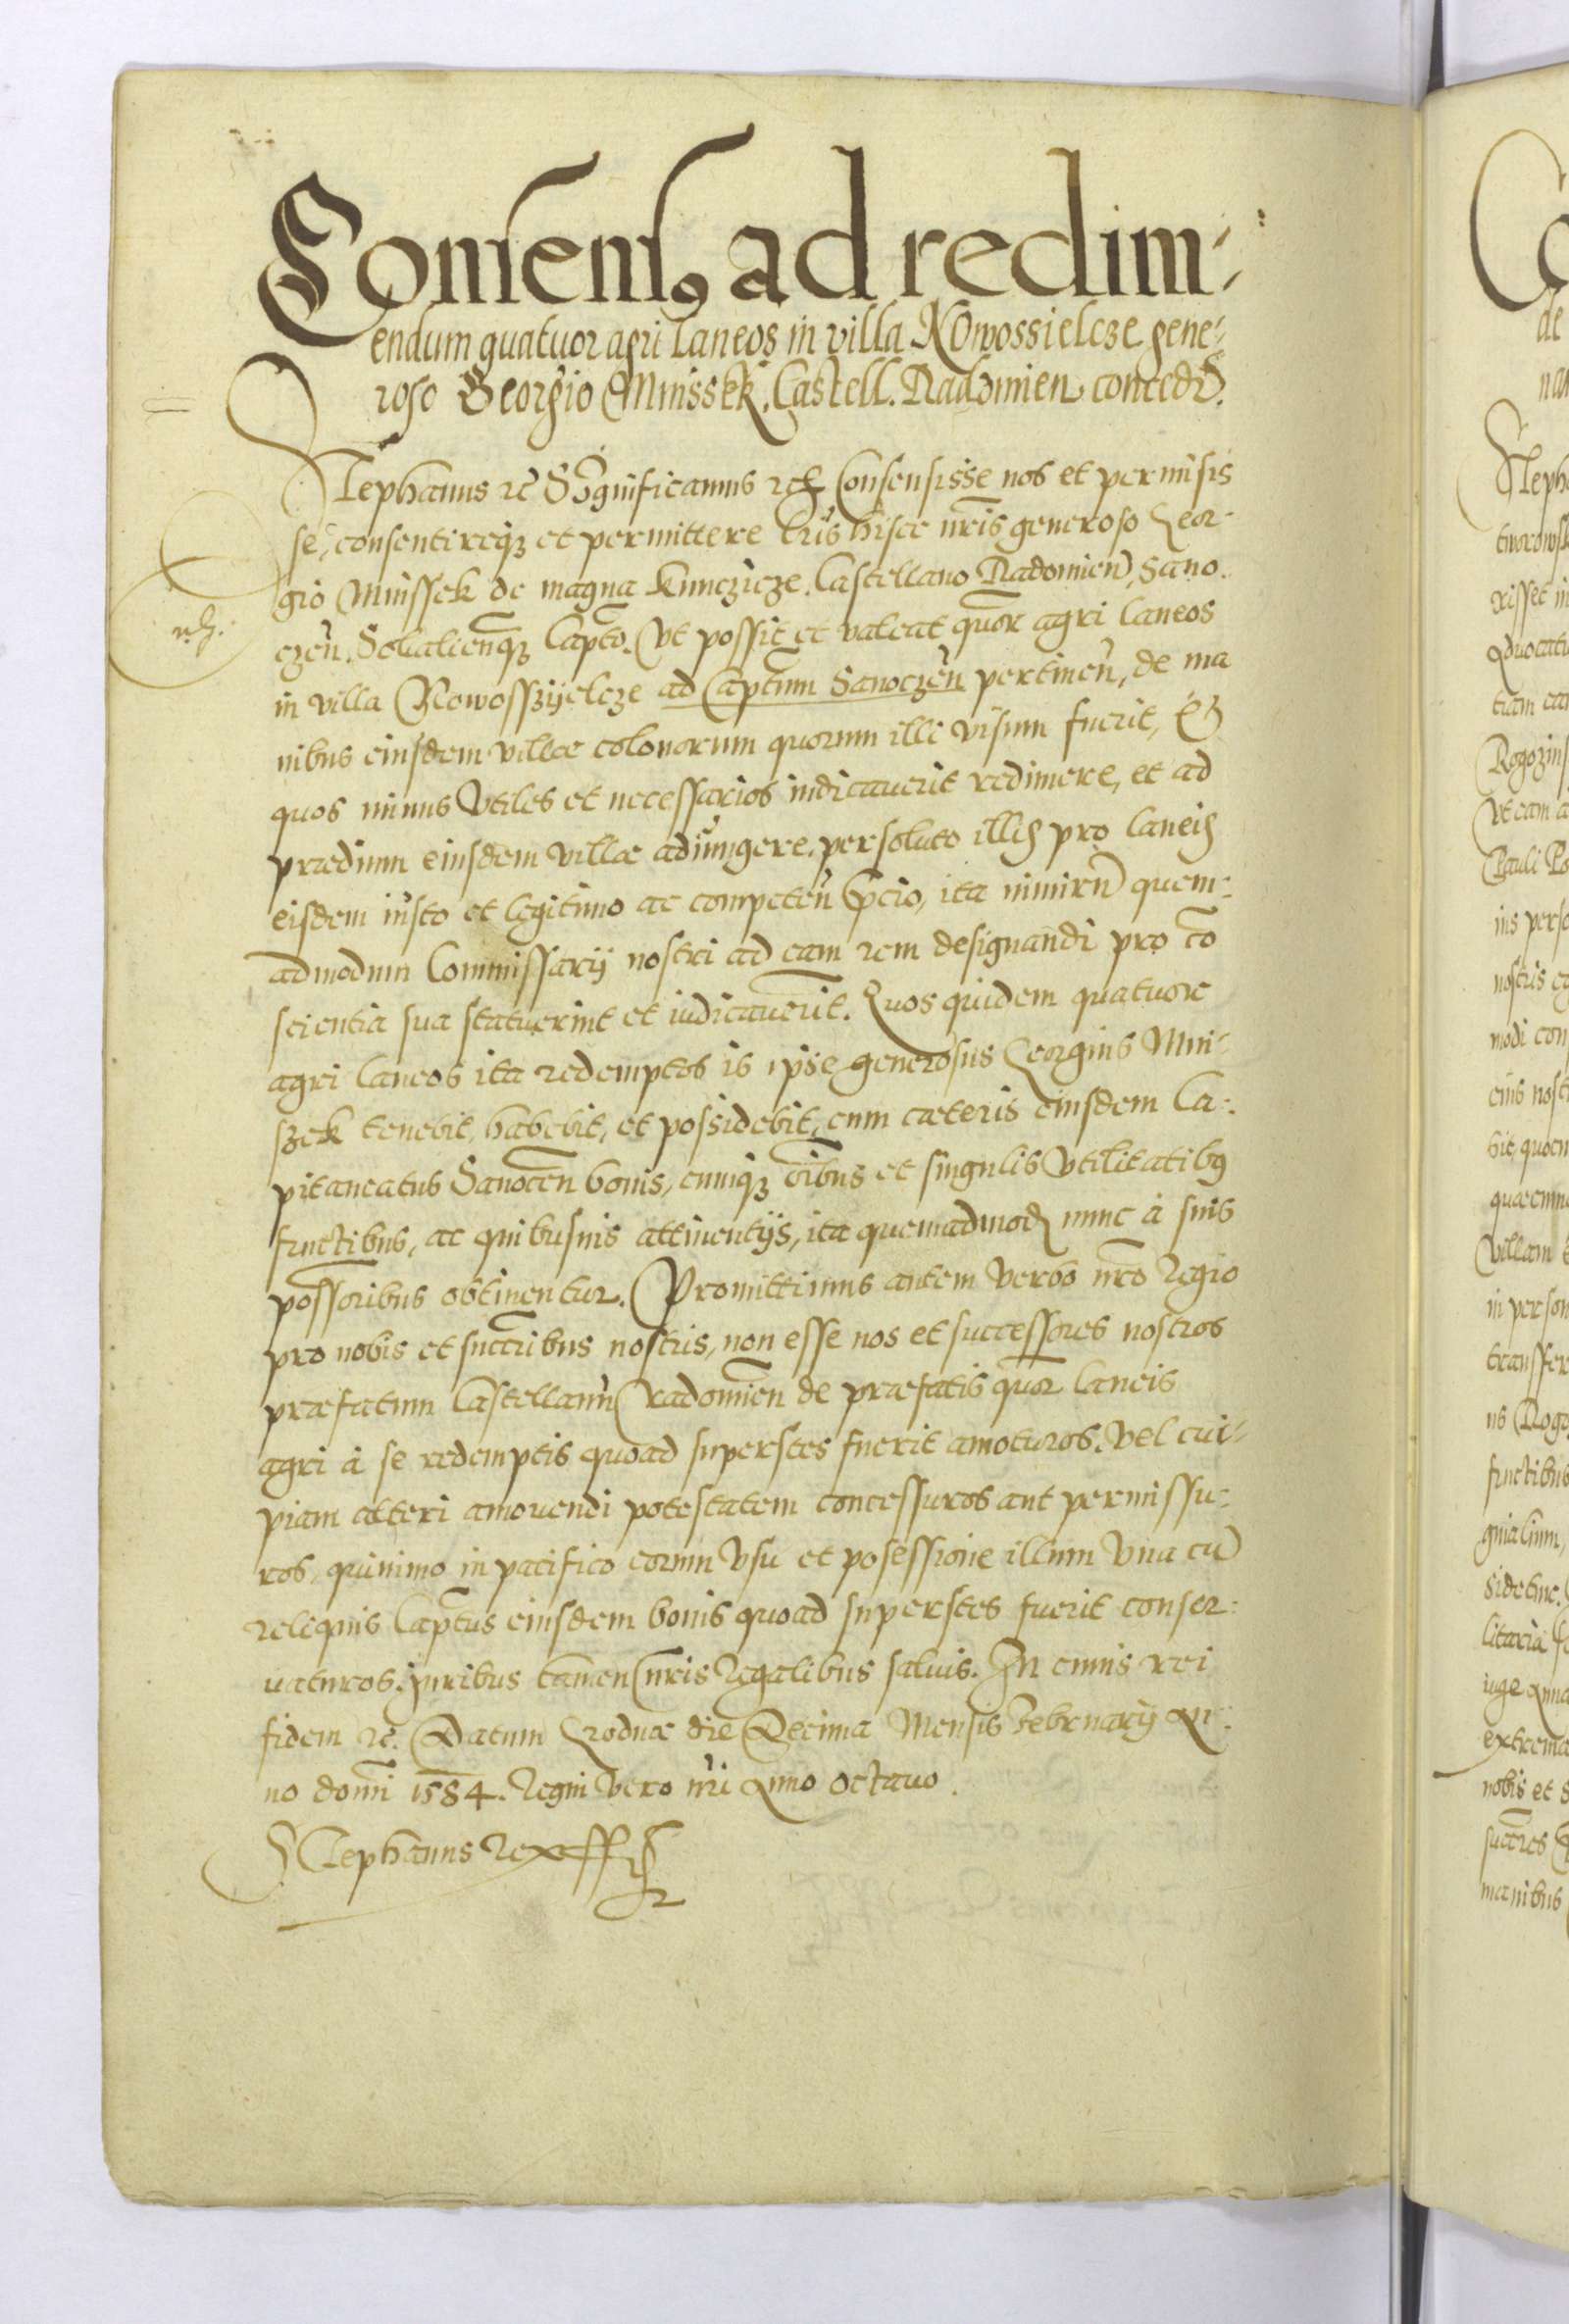 Consensus ad redim-
endum quatuor agri laneos in villa Nowossielcze gene-
roso Georgio Mnissek, Castell. Radomien. conced.
Stephanus rc̃ Significamus rc̃ Consensisse nos et permisis
se, consentireq3 et permittere lr̃is hisce nr̃is generoso Geor-
gio Mnissek de magna Kunczicze, Castellano Radomien̄, Sano-
czen̄. Sokalien̄q3 Capt̃o. Vt possit et valeat quor agri laneos
in villa Nowosszÿelcze ad Capt̃um Sanoczen̄ pertinen̄, de ma
nibus eiusdem villæ colonorum quorum illi visum fuerit, &
quos minus vtiles et necessarios iudicaverit redimere, et ad
prædium eiusdem villæ adiungere, persoluto illis pro laneis
eisdem iusto et legitimo ac competen̄ p̃cio, ita nimirū quem-
admodum Commissarij nostri ad eam rem designandi pro cō
scientia sua statuerint et iudicaverīt. Quos quidem quatuor
agri laneos ita redemptos is ipse generosus Georgius Mni-
szek tenebit, habebit, et possidebit, cum cæteris eiusdem Ca-
pitaneatus Sanocen̄ bonis, cumq3 oībus et singulis vtilitatib9
fructibus, ac quibusuis attinentijs, ita quemadmod nunc à suis
possoribus obtinentur. Promittimus autem verbo nr̃o Regio
pro nobis et succr̃ibus nostris, non esse nos et successores nostros
præfatum Castellanū Radomien̄ de præfatis quor laneis
agri à se redemptis quoad superstes fuerit amoturos. Vel cui-
piam alteri amovendi potestatem concessuros aut permissu-
ros, quinimo in pacifico eorum vsu et possessione illum vna cū
reliquis Capt̃us eiusdem bonis quoad superstes fuerit conser-
uaturos, juribus tamen nr̃is Regalibus saluis. In cuius rei
fidem rc̃. Datum Grodnæ die Decima Mensis Februarij An-
no domi 1584. Regni vero nr̃i Anno octauo.
Stephanus Rex ss